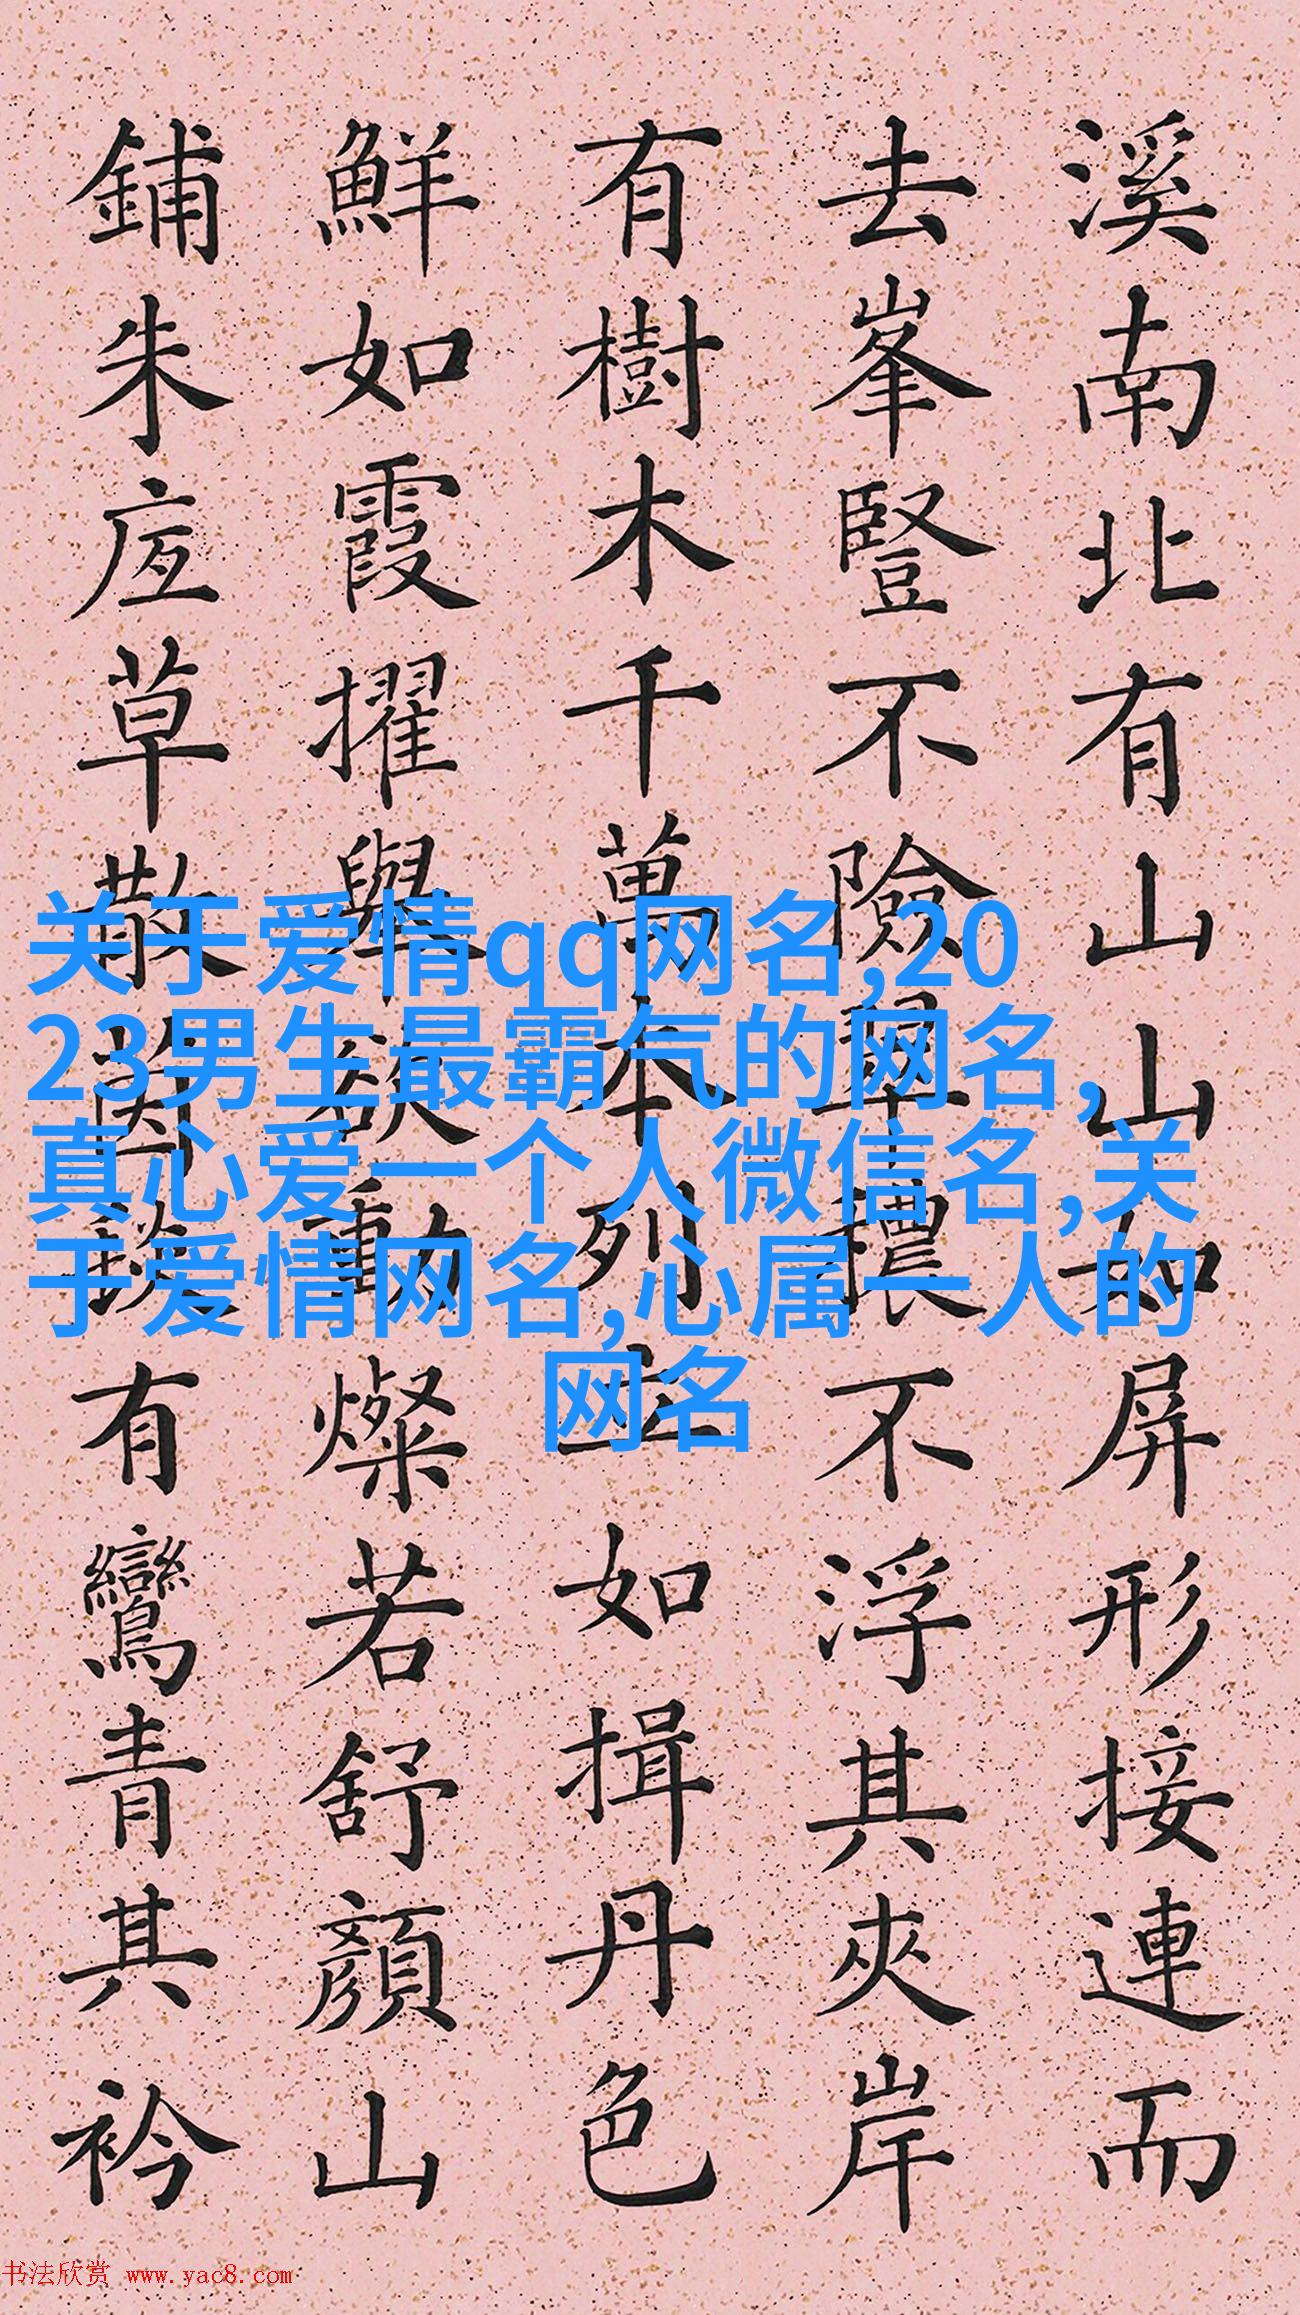 溪南北有山山如屏形接連而
去峯豎不險翠穠不浮其夾岸
有樹木千萬本列立如揖丹色
鮮如霞擢舉欲動燦若舒顏山
鋪朱草散茵有鸞青其衿
关于爱情qq网名,20
23男生最霸气的网名,
真心爱一个人微信名,关
于爱情网名,心属一人的
网名
书法欣赏 www.yac8.com